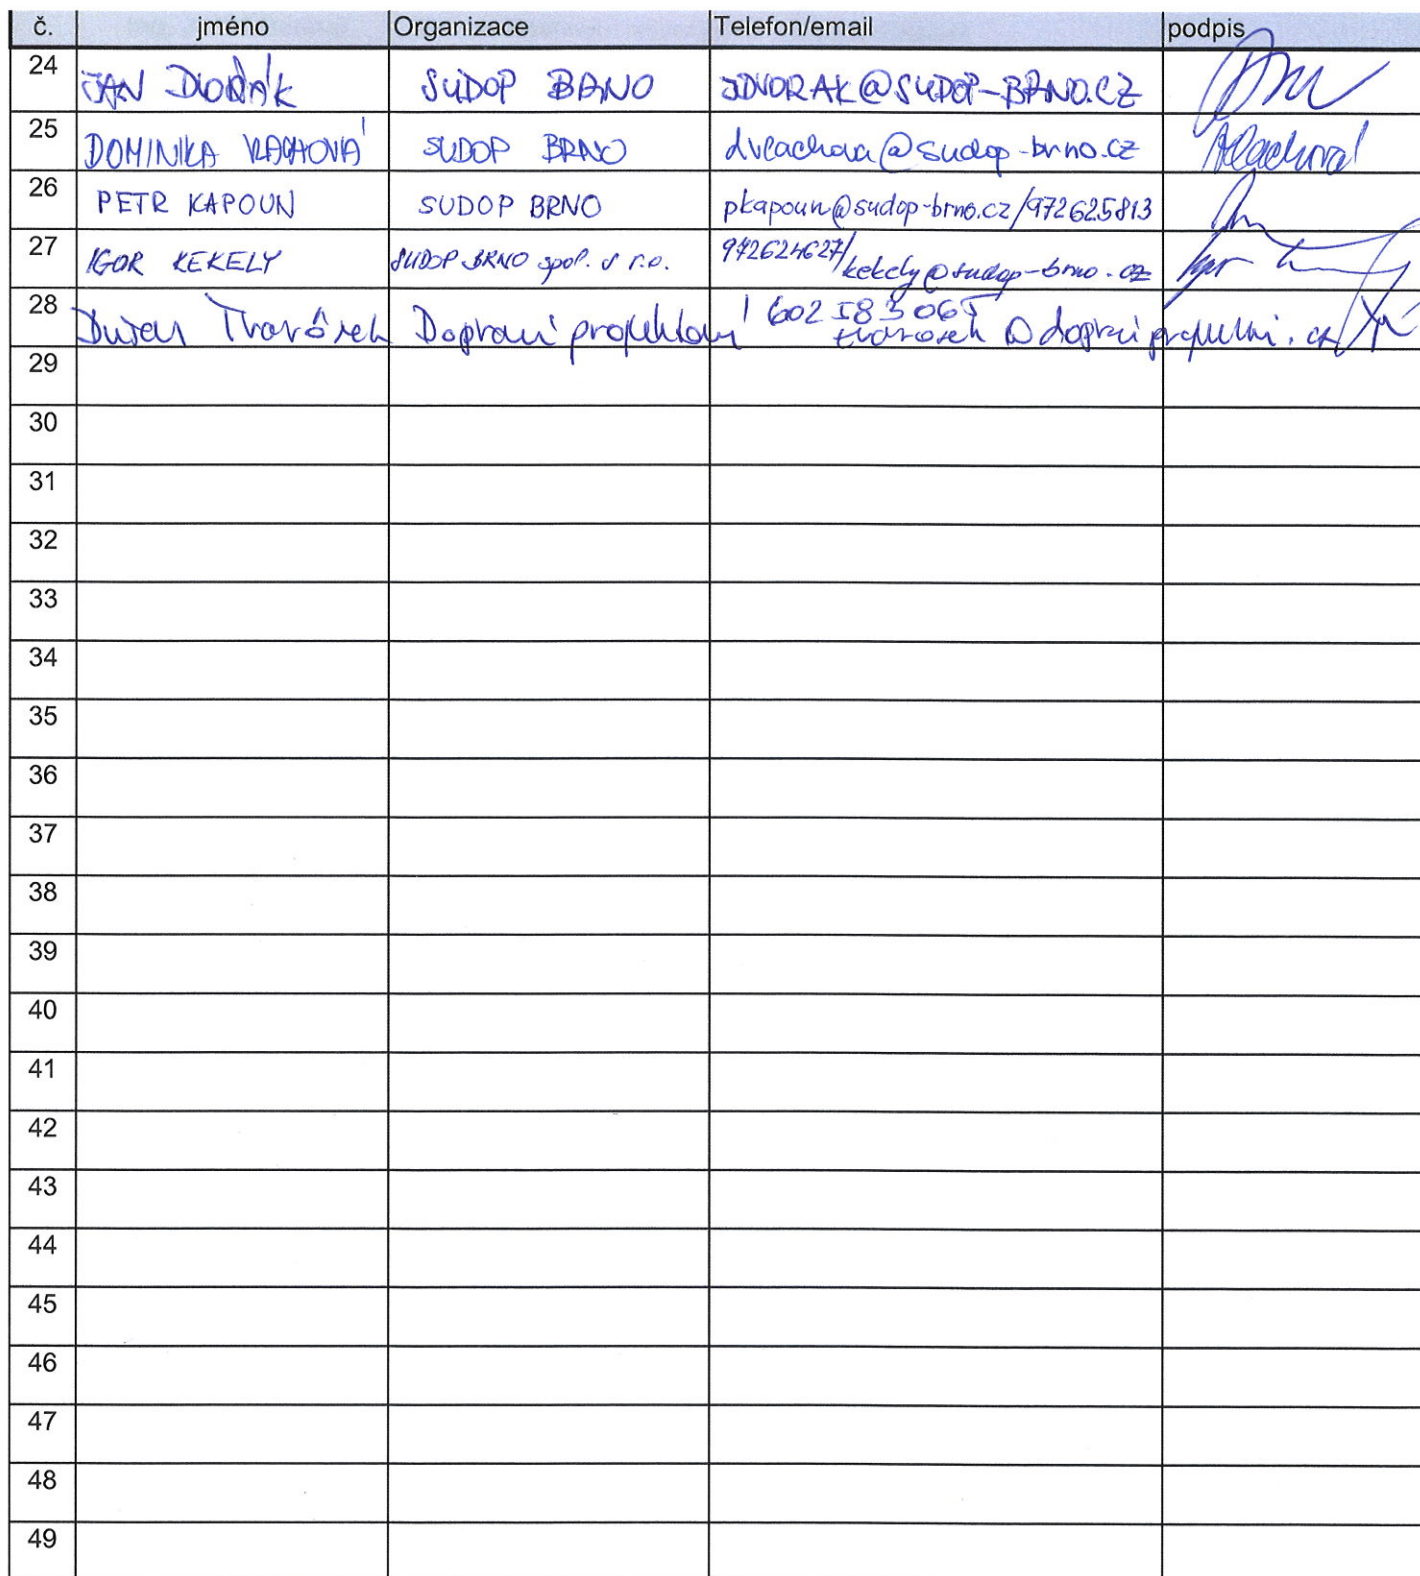 č. jméno Organizace Telefon/email podpis
24 JAN DVOŘÁK SUDOP BRNO JDVORAK@SUDOP-BRNO.CZ
25 DOMINIKA VLACHOVÁ SUDOP BRNO dvlachova@sudop-brno.cz Vlachová
26 PETR KAPOUN SUDOP BRNO pkapoun@sudop-brno.cz/972625813
27 IGOR KEKELY SUDOP BRNO spol. s r.o. 972624627/
kekely@sudop-brno.cz
28 Dušan Tvarôžek Dopravní projektování 602 583 065
29
30
31
32
33
34
35
36
37
38
39
40
41
42
43
44
45
46
47
48
49